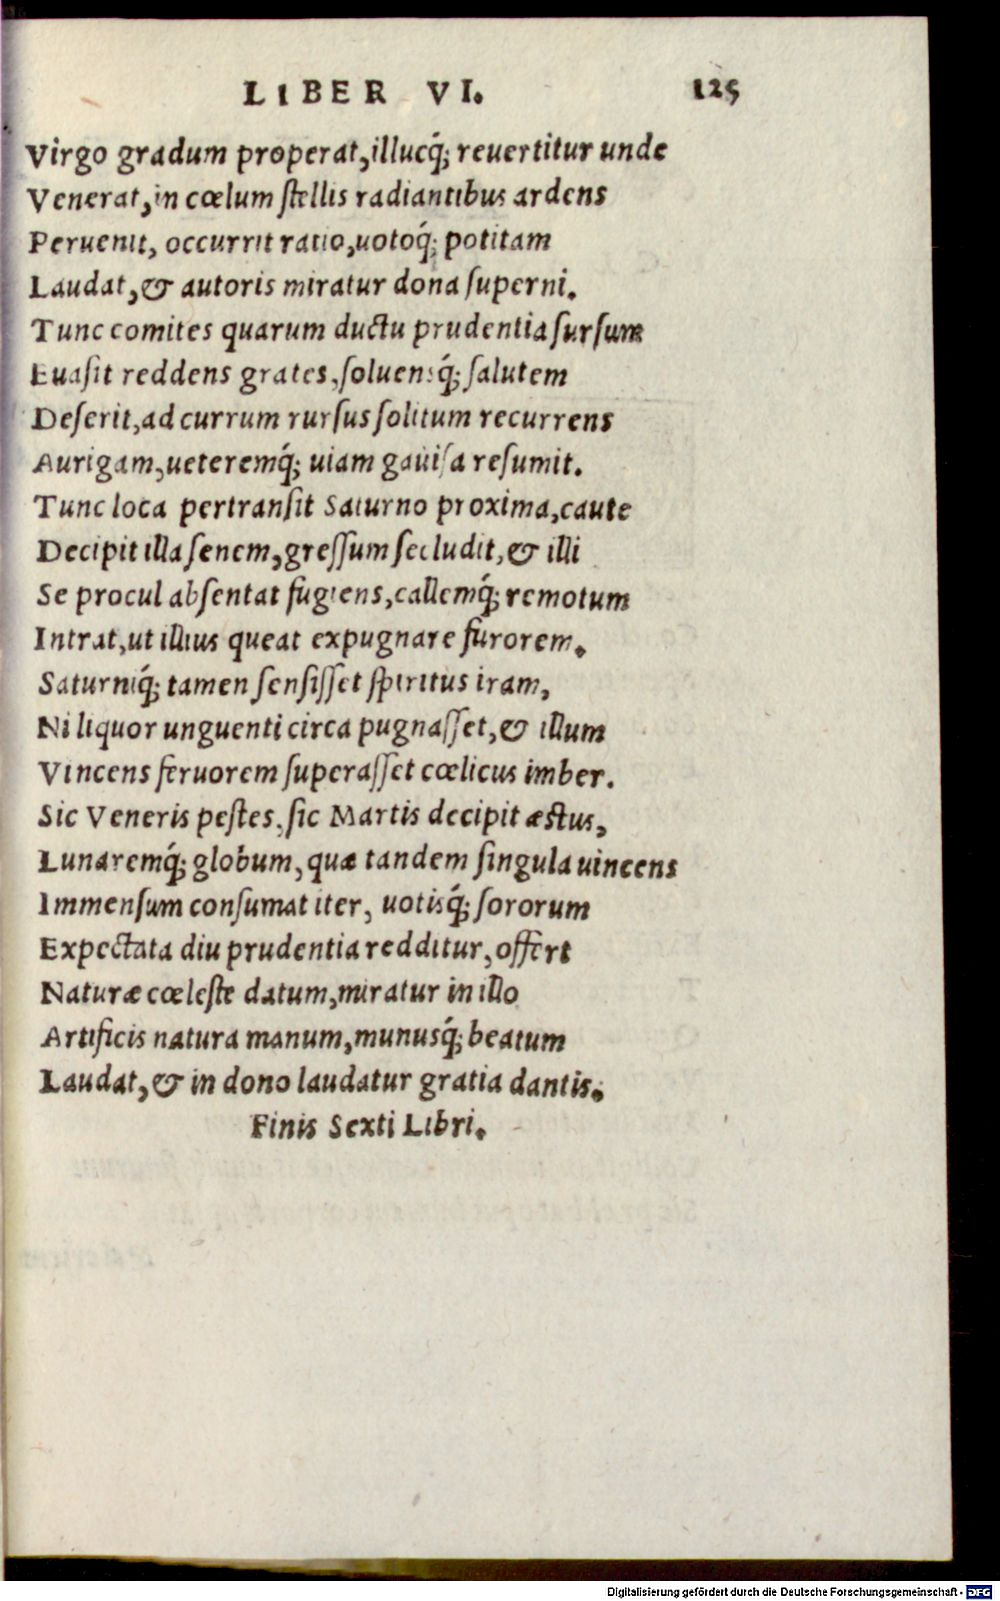 LIBER VI. 125
Virgo gradum properat, illucq́; reuertitur unde
Venerat, in cœlum stellis radiantibus ardens
Peruenit, occurrit ratio, uotoq́; potitam
Laudat, & autoris miratur dona superni.
Tunc comites quarum ductu prudentia sursum
Euasit reddens grates, soluensq́; salutem
Deserit, ad currum rursus solitum recurrens
Aurigam, ueteremq́; uiam gauisa resumit.
Tunc loca pertransit Saturno proxima, caute
Decipit illa senem, gressum secludit, & illi
Se procul absentat fugiens, callemq́; remotum
Intrat, ut illius queat expugnare furorem.
Saturniq́; tamen sensisset spiritus iram,
Ni liquor unguenti circa pugnasset, & illum
Vincens feruorem superasset cœlicus imber.
Sic Veneris pestes, sic Martis decipit æstus,
Lunaremq́; globum, quæ tandem singula uincens
Immensum consumat iter, uotisq́; sororum
Expectata diu prudentia redditur, offert
Naturæ cœleste datum, miratur in illo
Artificis natura manum, munusq́; beatum
Laudat, & in dono laudatur gratia dantis.
Finis Sexti Libri.
Digitalisierung gefördert durch die Deutsche Forschungsgemeinschaft - DFG